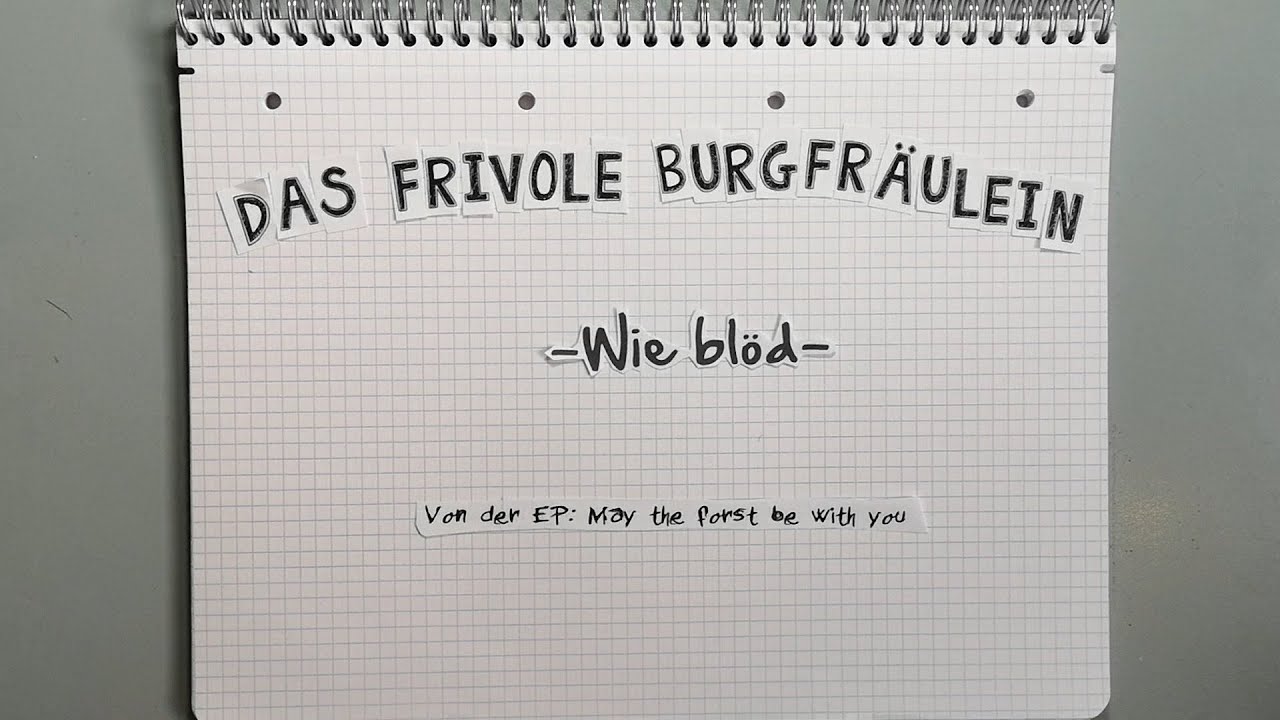 DAS FRIVOLE BURGFRÄULEIN
-Wie blöd-
Von der EP: May the forst be with you